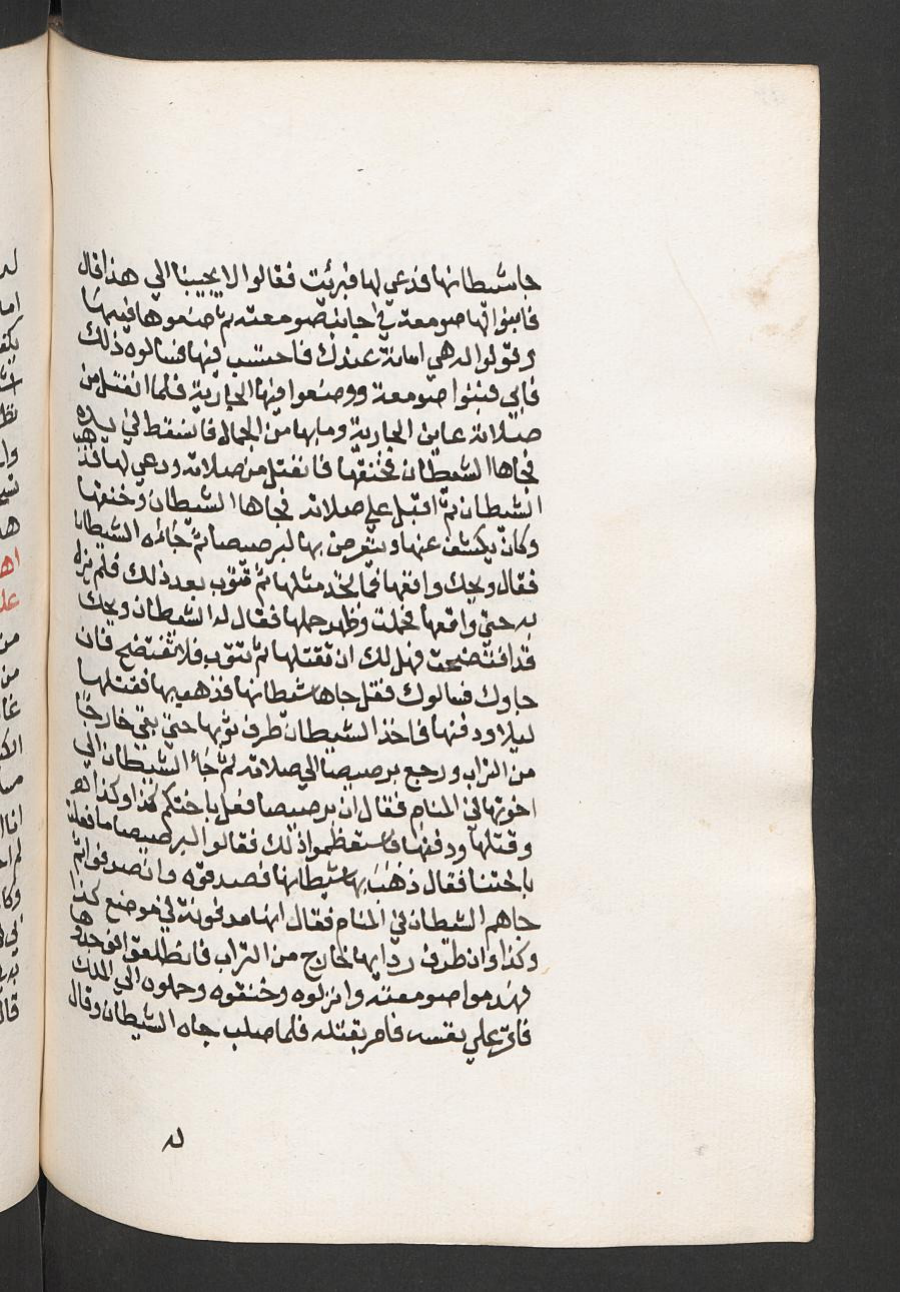 جا شيطانها فدعي لها فبرئت فقالوا لا يجيبنا الي هذا قال
فابنوا لها صومعة في جانب صومعته ثم ضعوها فيها
وقولوا له هي امانة عندك فاحتسب فيها فسالوه ذلك
فابي فبنوا صومعة ووضعوا فيها الجارية فلما انفتل من
صلاته عاين الجارية وما بها من الجمال فاسقط في يده
فجاها الشيطان فخنقها فانفتل من صلاته ودعي لها فذهب
الشيطان ثم اقبل علي صلاته فجاها الشيطان وخنقها
وكان يكشف عنها ويتعرض بها لبرصيصا ثم جائه الشيطان
فقال ويحك واقعها فما تجد مثلها ثم تتوب بعد ذلك فلم يزل
به حتي واقعها فحملت وظهر حملها فقال له الشيطان ويحك
قد افتضحت فهل لك ان تقتلها ثم تتوب فلا تفتضح فان
جاوك فسالوك فقل جاها شيطانها فذهب بها فقتلها
ليلا ودفنها فاخذ الشيطان طرف ثوبها حتي بقي خارجا
من التراب ورجع برصيصا الي صلاته ثم جاء الشيطان الي
اخوتها في المنام فقال ان برصيصا فعل باختكم كذا وكذا
وقتلها ودفنها فاستعظموا ذلك فقالوا لبرصيصا ما فعلت
باختنا فقال ذهب بها شيطانها فصدقوه وانصرفوا ثم
جاهم الشيطان في المنام فقال انها مدفونة في موضع كذا
وكذا وان طرف ردايها خارج من التراب فانطلقوا فوجدوها
فهدموا صومعته وانزلوه وخنقوه وحملوه الي الملك
فاقر علي نفسه فامر بقتله فلما صلب جاه الشيطان وقال
له